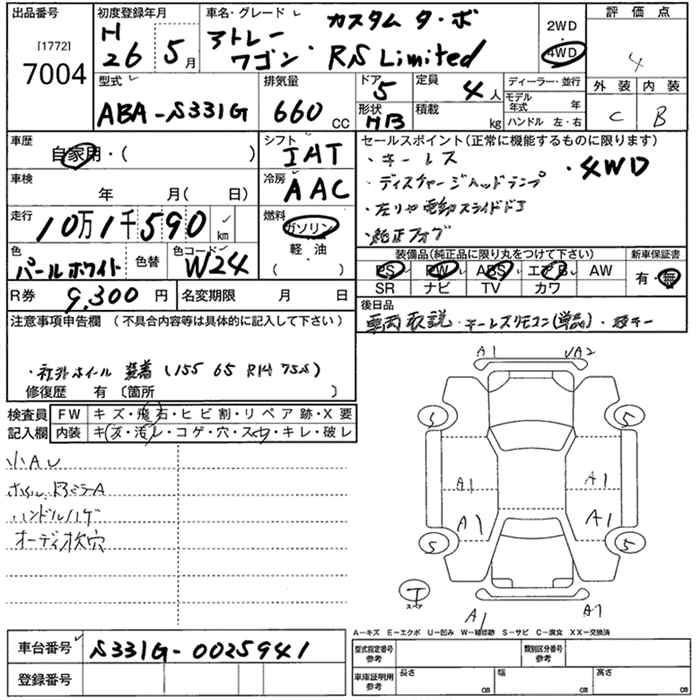 出品番号 初度登録年月 車名・グレード カスタム ターボ 評価点
[1772] H26 5月 アトレーワゴン RS Limited 2WD・4WD 4
7004
型式 排気量 ドア 5 定員 4人 ディーラー・並行 外装 内装
ABA-S331G 660 CC 形状 HB 積載 kg モデル年式 年 C B
ハンドル 左・右
車歴 シフト セールスポイント(正常に機能するものに限ります)
自家用・( ) IAT ・キーレス ・4WD
車検 年 月( 日) 冷房 AAC ・ディスチャージヘッドランプ
走行 10万1千590 km 燃料 ・左リヤ電動スライドドア
ガソリン
軽・油
( )
・純正フォグ
色 パールホワイト 色替 色コード W24 装備品(純正品に限り丸をつけて下さい) 新車保証書
PS PW ABS エアB AW 有・無
R券 9,300円 名変期限 月 日 SR ナビ TV カワ
注意事項申告欄 (不具合内容等は具体的に記入して下さい) 後日品
車両取説・キーレスリモコン(単品)
・社外ホイール装着 (155 65 R14 75S)
修復歴 有 〔箇所 〕
検査員 FW キズ・飛石・ヒビ割・リペア跡・X要
記入欄 内装 キズ・汚レ・コゲ・穴・スレ・キレ・破レ
小AU
ハンドルハゲ
オーディオ枠穴
A1 A2
S S
A1 A1
A1 A1
S S
T
スペア
A1 A1
A-キズ E-エクボ U-凹み W-補修跡 S-サビ C-腐食 XX-交換済
車台番号 S331G-0025941
登録番号
型式指定番号 参考 類別区分番号 参考
車庫証明用 参考 長さ cm 幅 cm 高さ cm